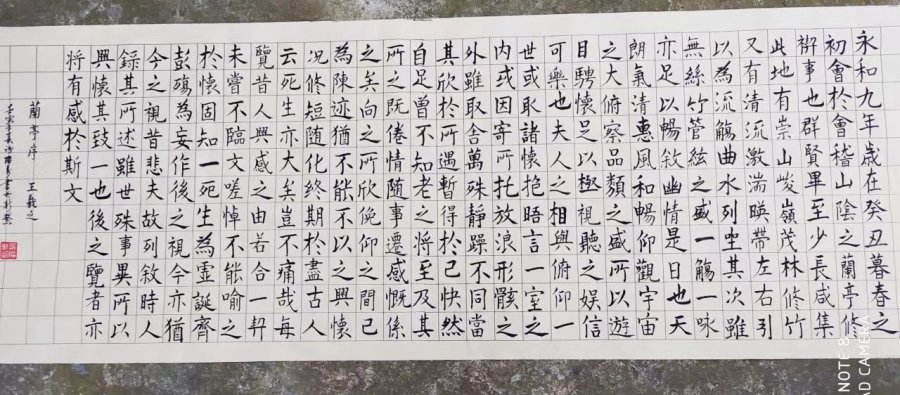 永和九年歲在癸丑暮春之
初會於會稽山陰之蘭亭修
禊事也群賢畢至少長咸集
此地有崇山峻嶺茂林修竹
又有清流激湍暎帶左右引
以為流觴曲水列坐其次雖
無絲竹管絃之盛一觴一咏
亦足以暢敘幽情是日也天
朗氣清惠風和暢仰觀宇宙
之大俯察品類之盛所以遊
目騁懷足以極視聽之娛信
可樂也夫人之相與俯仰一
世或取諸懷抱晤言一室之
内或因寄所托放浪形骸之
外雖取舍萬殊靜躁不同當
其欣於所遇暫得於己快然
自足曾不知老之將至及其
所之既倦情随事遷感慨係
之矣向之所欣俛仰之間已
為陳迹猶不能不以之興懷
况修短随化終期於盡古人
云死生亦大矣豈不痛哉每
覽昔人興感之由若合一契
未嘗不臨文嗟悼不能喻之
於懷固知一死生為虛誕齊
彭殤為妄作後之視今亦猶
今之視昔悲夫故列敘時人
錄其所述雖世殊事異所以
興懷其致一也後之覽者亦
將有感於斯文
蘭亭序 王羲之
NOTE 8
AD CAMERA